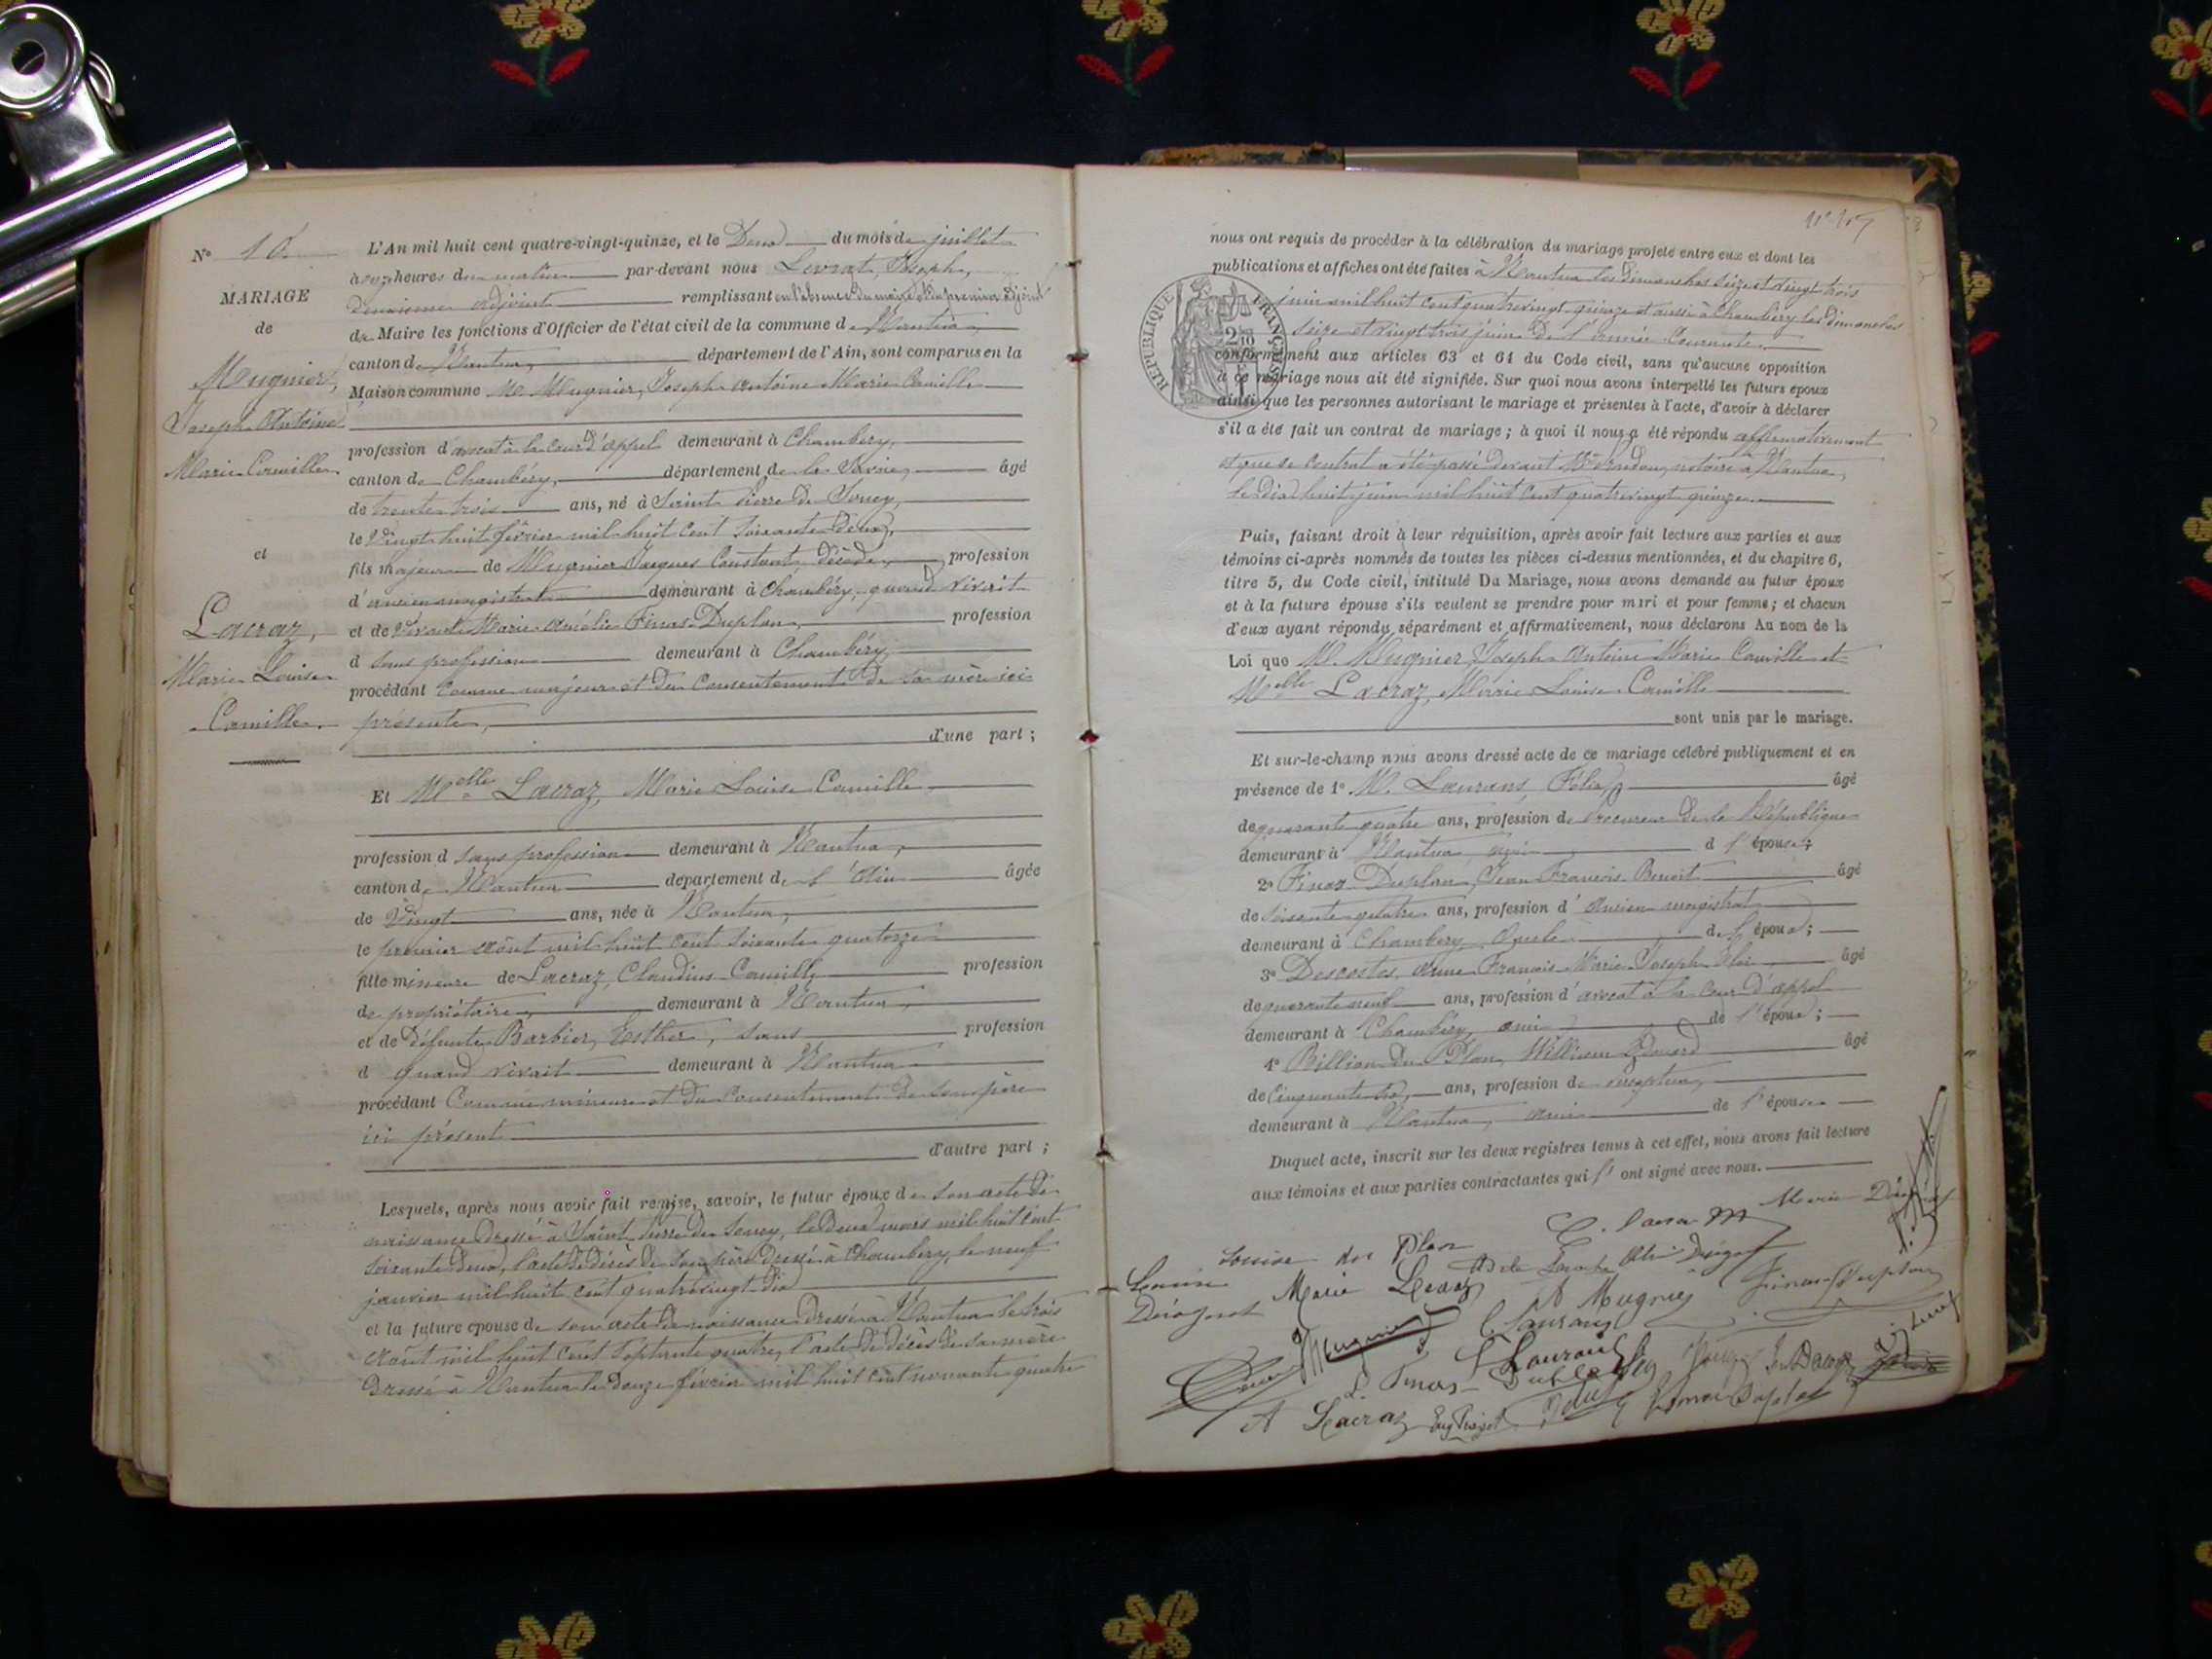 N° 10
MARIAGE
de
Mugnier,
Joseph Antoine
Marie Camille
et
Lacraz,
Marie Louise
Camille.
L'An mil huit cent quatre-vingt-quinze, et le Deux du mois de juillet
à onze heures du matin par-devant nous Levrat, Joseph,
Deuxième adjoint remplissant en l'absence du maire et du premier adjoint
de Maire les fonctions d'Officier de l'état civil de la commune de Nantua,
canton de Nantua, département de l'Ain, sont comparus en la
Maison commune M. Mugnier, Joseph Antoine Marie Camille
profession d'avocat à la cour d'appel demeurant à Chambéry,
canton de Chambéry, département de la Savoie, âgé
de trente trois ans, né à Saint Pierre de Soucy,
le Vingt huit février mil huit cent soixante deux,
fils majeur de Mugnier Jacques Constant décédé, profession
d'ancien magistrat demeurant à Chambéry, quand vivait
et de vivante Marie Amélie Finas-Duplan, profession
d sans profession demeurant à Chambéry,
procédant comme majeur et du consentement de sa mère ici
présente,
d'une part ;
Et Melle Lacraz, Marie Louise Camille,
profession d sans profession demeurant à Nantua,
canton de Nantua département de l'Ain âgée
de Vingt ans, née à Nantua,
le premier août mil huit cent soixante quatorze
fille mineure de Lacraz, Claudius Camille profession
de propriétaire, demeurant à Nantua,
et de défunte Barbier, Esther, sans profession
d quand vivait demeurant à Nantua
procédant Comme mineure et du consentement de son père
ici présent
d'autre part ;
Lesquels, après nous avoir fait remise, savoir, le futur époux de son acte de
naissance dressé à Saint Pierre de Soucy, le deux mars mil huit cent
soixante deux, l'acte de décès de son père dressé à Chambéry le neuf
janvier mil huit cent quatrevingt dix
et la future épouse de son acte de naissance dressé à Nantua le trois
août mil huit cent septante quatre, l'acte de décès de sa mère
dressé à Nantua le douze février mil huit cent nonante quatre
nous ont requis de procéder à la célébration du mariage projeté entre eux et dont les
publications et affiches ont été faites à Nantua les dimanches seize et vingt trois
juin mil huit cent quatrevingt quinze et aussi à Chambéry les dimanches
seize et vingt trois juin de l'année courante.
RÉPUBLIQUE FRANÇAISE
conformément aux articles 63 et 64 du Code civil, sans qu'aucune opposition
à ce mariage nous ait été signifiée. Sur quoi nous avons interpellé les futurs époux
ainsi que les personnes autorisant le mariage et présentes à l'acte, d'avoir à déclarer
s'il a été fait un contrat de mariage ; à quoi il nous a été répondu affirmativement
et que ce contrat a été passé devant notaire à Nantua,
le dix huit juin mil huit cent quatrevingt quinze.
Puis, faisant droit à leur réquisition, après avoir fait lecture aux parties et aux
témoins ci-après nommés de toutes les pièces ci-dessus mentionnées, et du chapitre 6,
titre 5, du Code civil, intitulé Du Mariage, nous avons demandé au futur époux
et à la future épouse s'ils veulent se prendre pour mari et pour femme ; et chacun
d'eux ayant répondu séparément et affirmativement, nous déclarons Au nom de la
Loi que M. Mugnier Joseph Antoine Marie Camille et
Melle Lacraz, Marie Louise Camille
sont unis par le mariage.
Et sur-le-champ nous avons dressé acte de ce mariage célébré publiquement et en
présence de 1° M. Laurans, Félix, âgé
de quarante quatre ans, profession de Procureur de la République
demeurant à Nantua ami d l'épouse ;
2° Finas-Duplan, Jean François Benoit âgé
de soixante quatre ans, profession d'ancien magistrat
demeurant à Chambéry, oncle de l'époux ;
3° Descostes, François Marie Joseph âgé
de quarante neuf ans, profession d'avocat à la cour d'appel
demeurant à Chambéry, ami de l'époux ;
4° Billion du Plan, William Edouard âgé
de Cinquante six, ans, profession de percepteur,
demeurant à Nantua, ami de l'épouse
Duquel acte, inscrit sur les deux registres tenus à cet effet, nous avons fait lecture
aux témoins et aux parties contractantes qui l' ont signé avec nous.
Louise du Plan
Marie Lacraz
A Mugnier
Finas-Duplan
Mugnier
A Lacraz